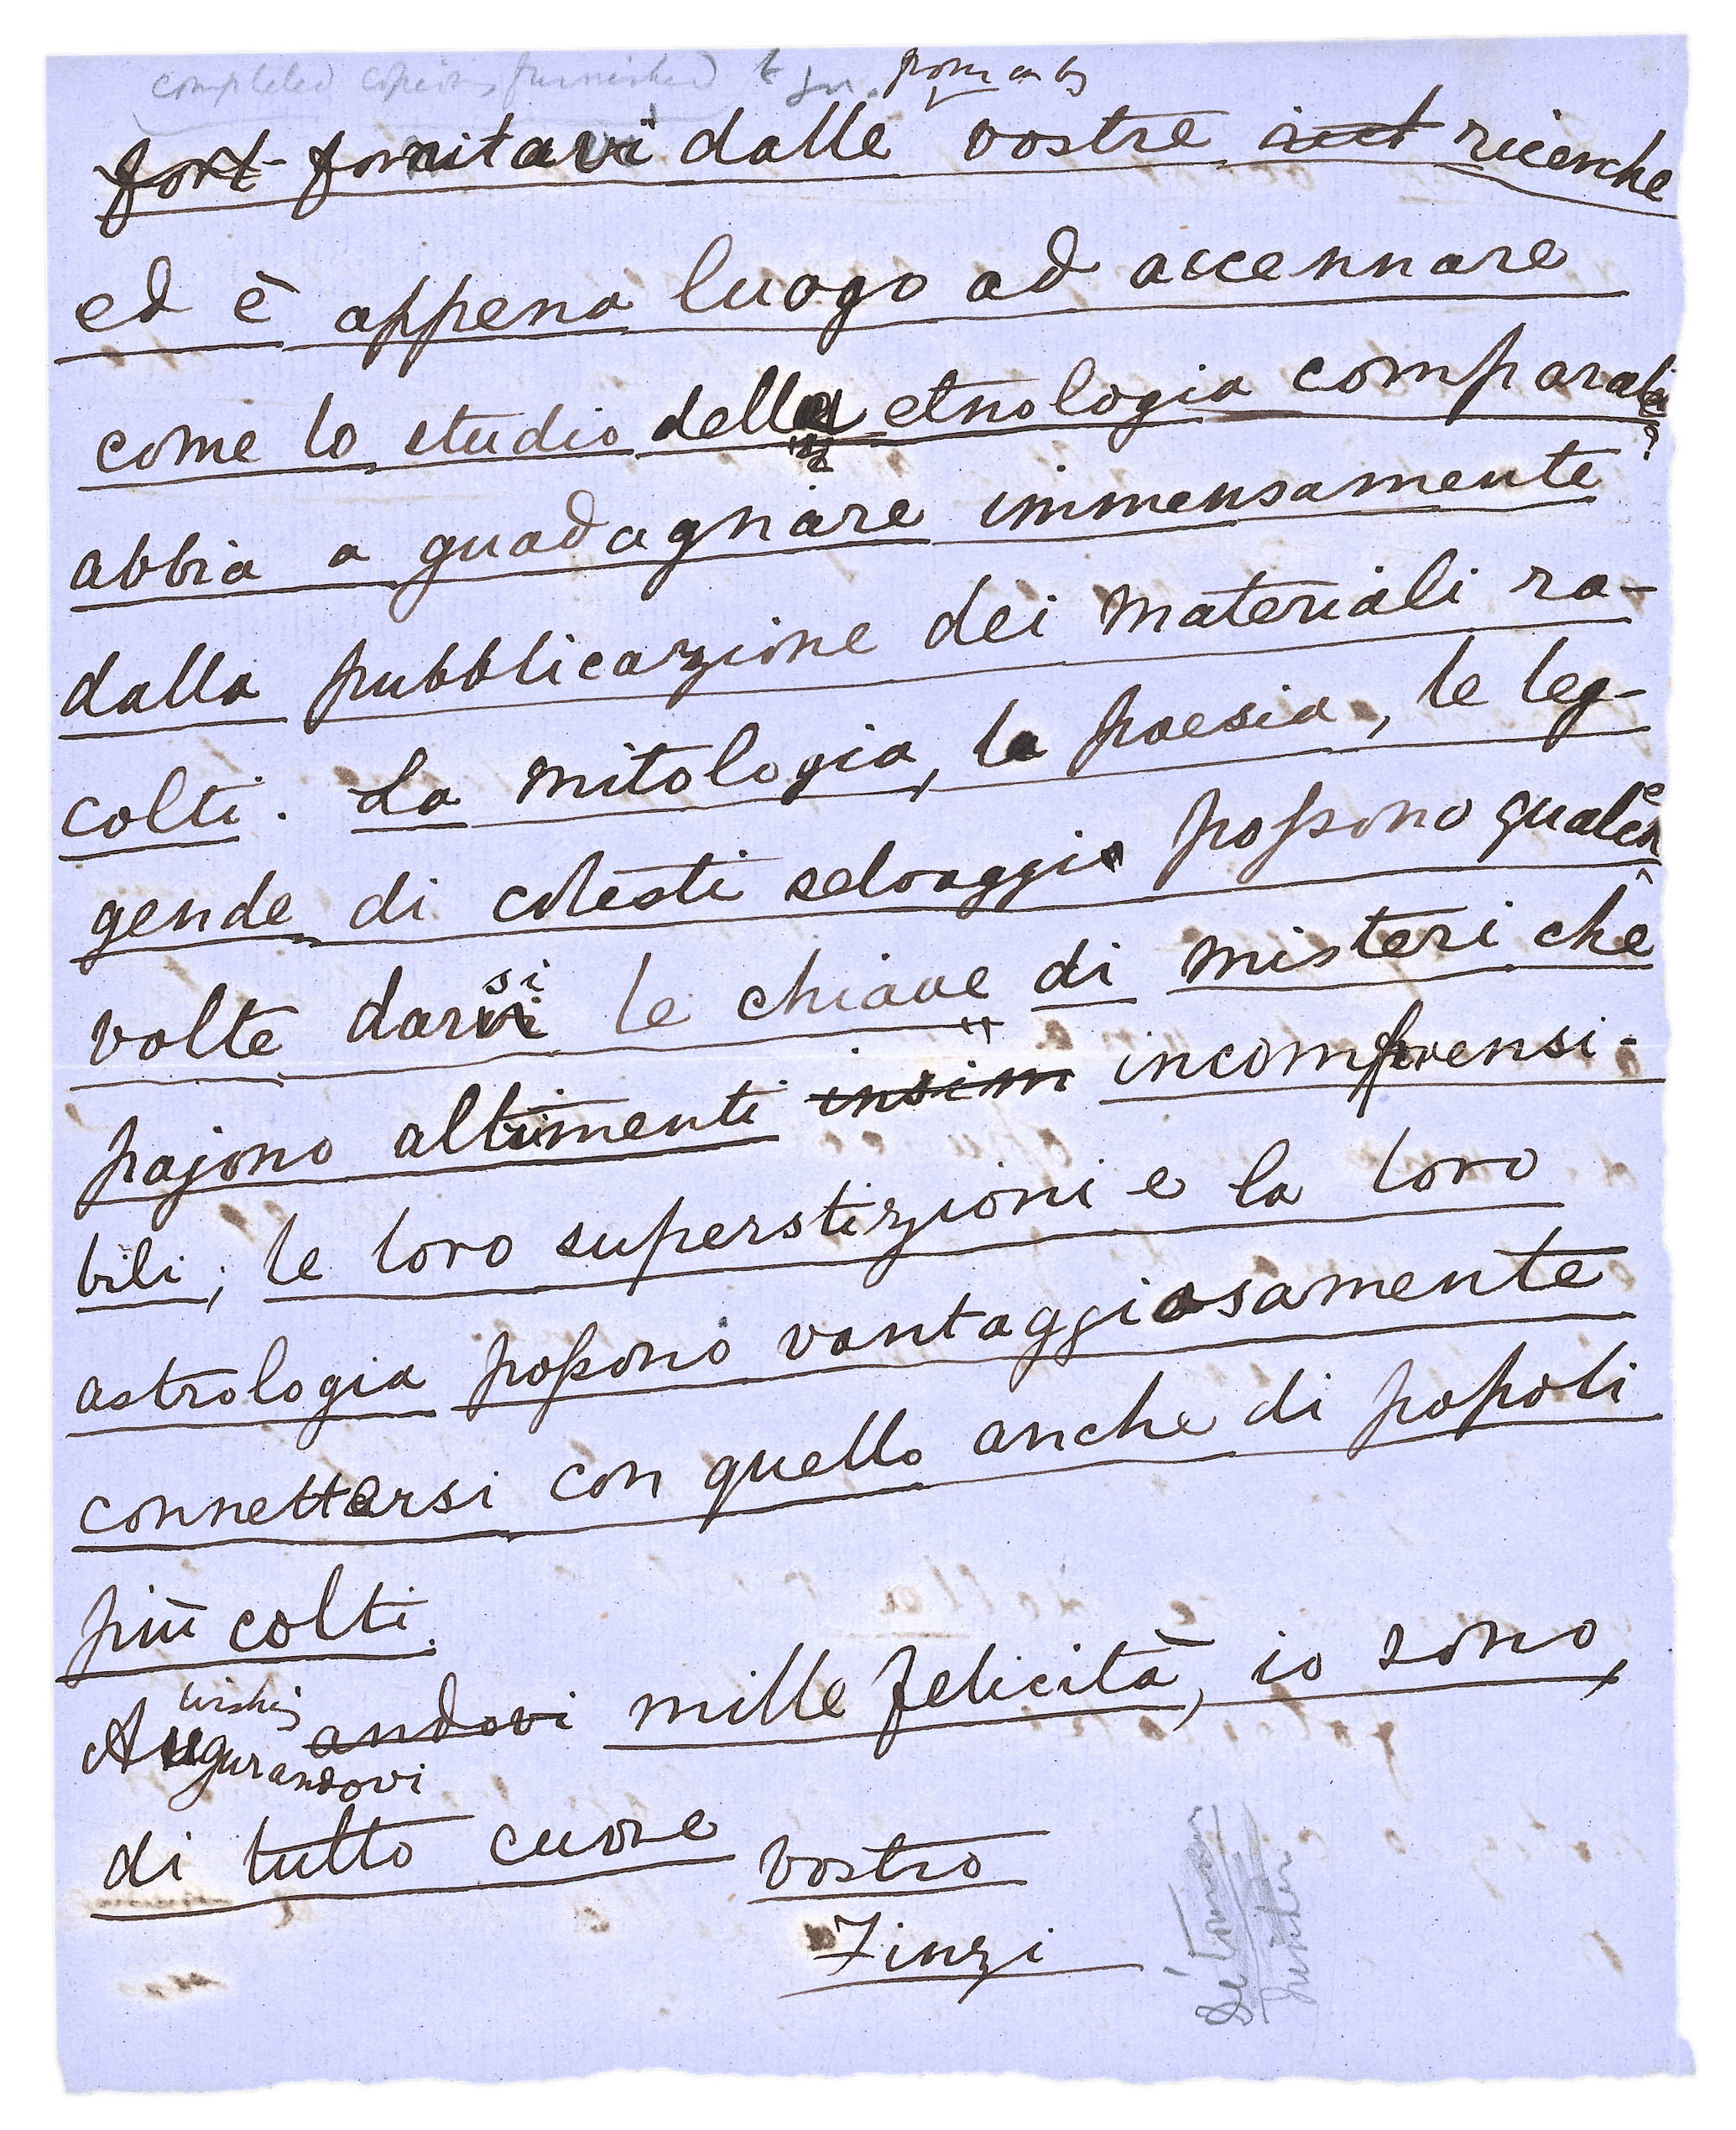 completed copions furnished to
from
fort fornitavi dalle vostre ricerche
ed è appena luogo ad accennare
come lo studio della etnologia comparata
abbia a guadagnare immensamente
dalla pubblicazione dei materiali ra-
colti. La mitologia, la poesia, le leg-
gende di cotesti selvaggi possono qualche
volte darsi le chiave di misteri che
pajono altrimenti insim incomprensi-
bili; le loro superstizioni e la loro
astrologia possono vantaggiosamente
connettersi con quello anche di popoli
più colti.
wishing
Augurandovi mille felicità, io sono,
di tutto cuore vostro
Finzi